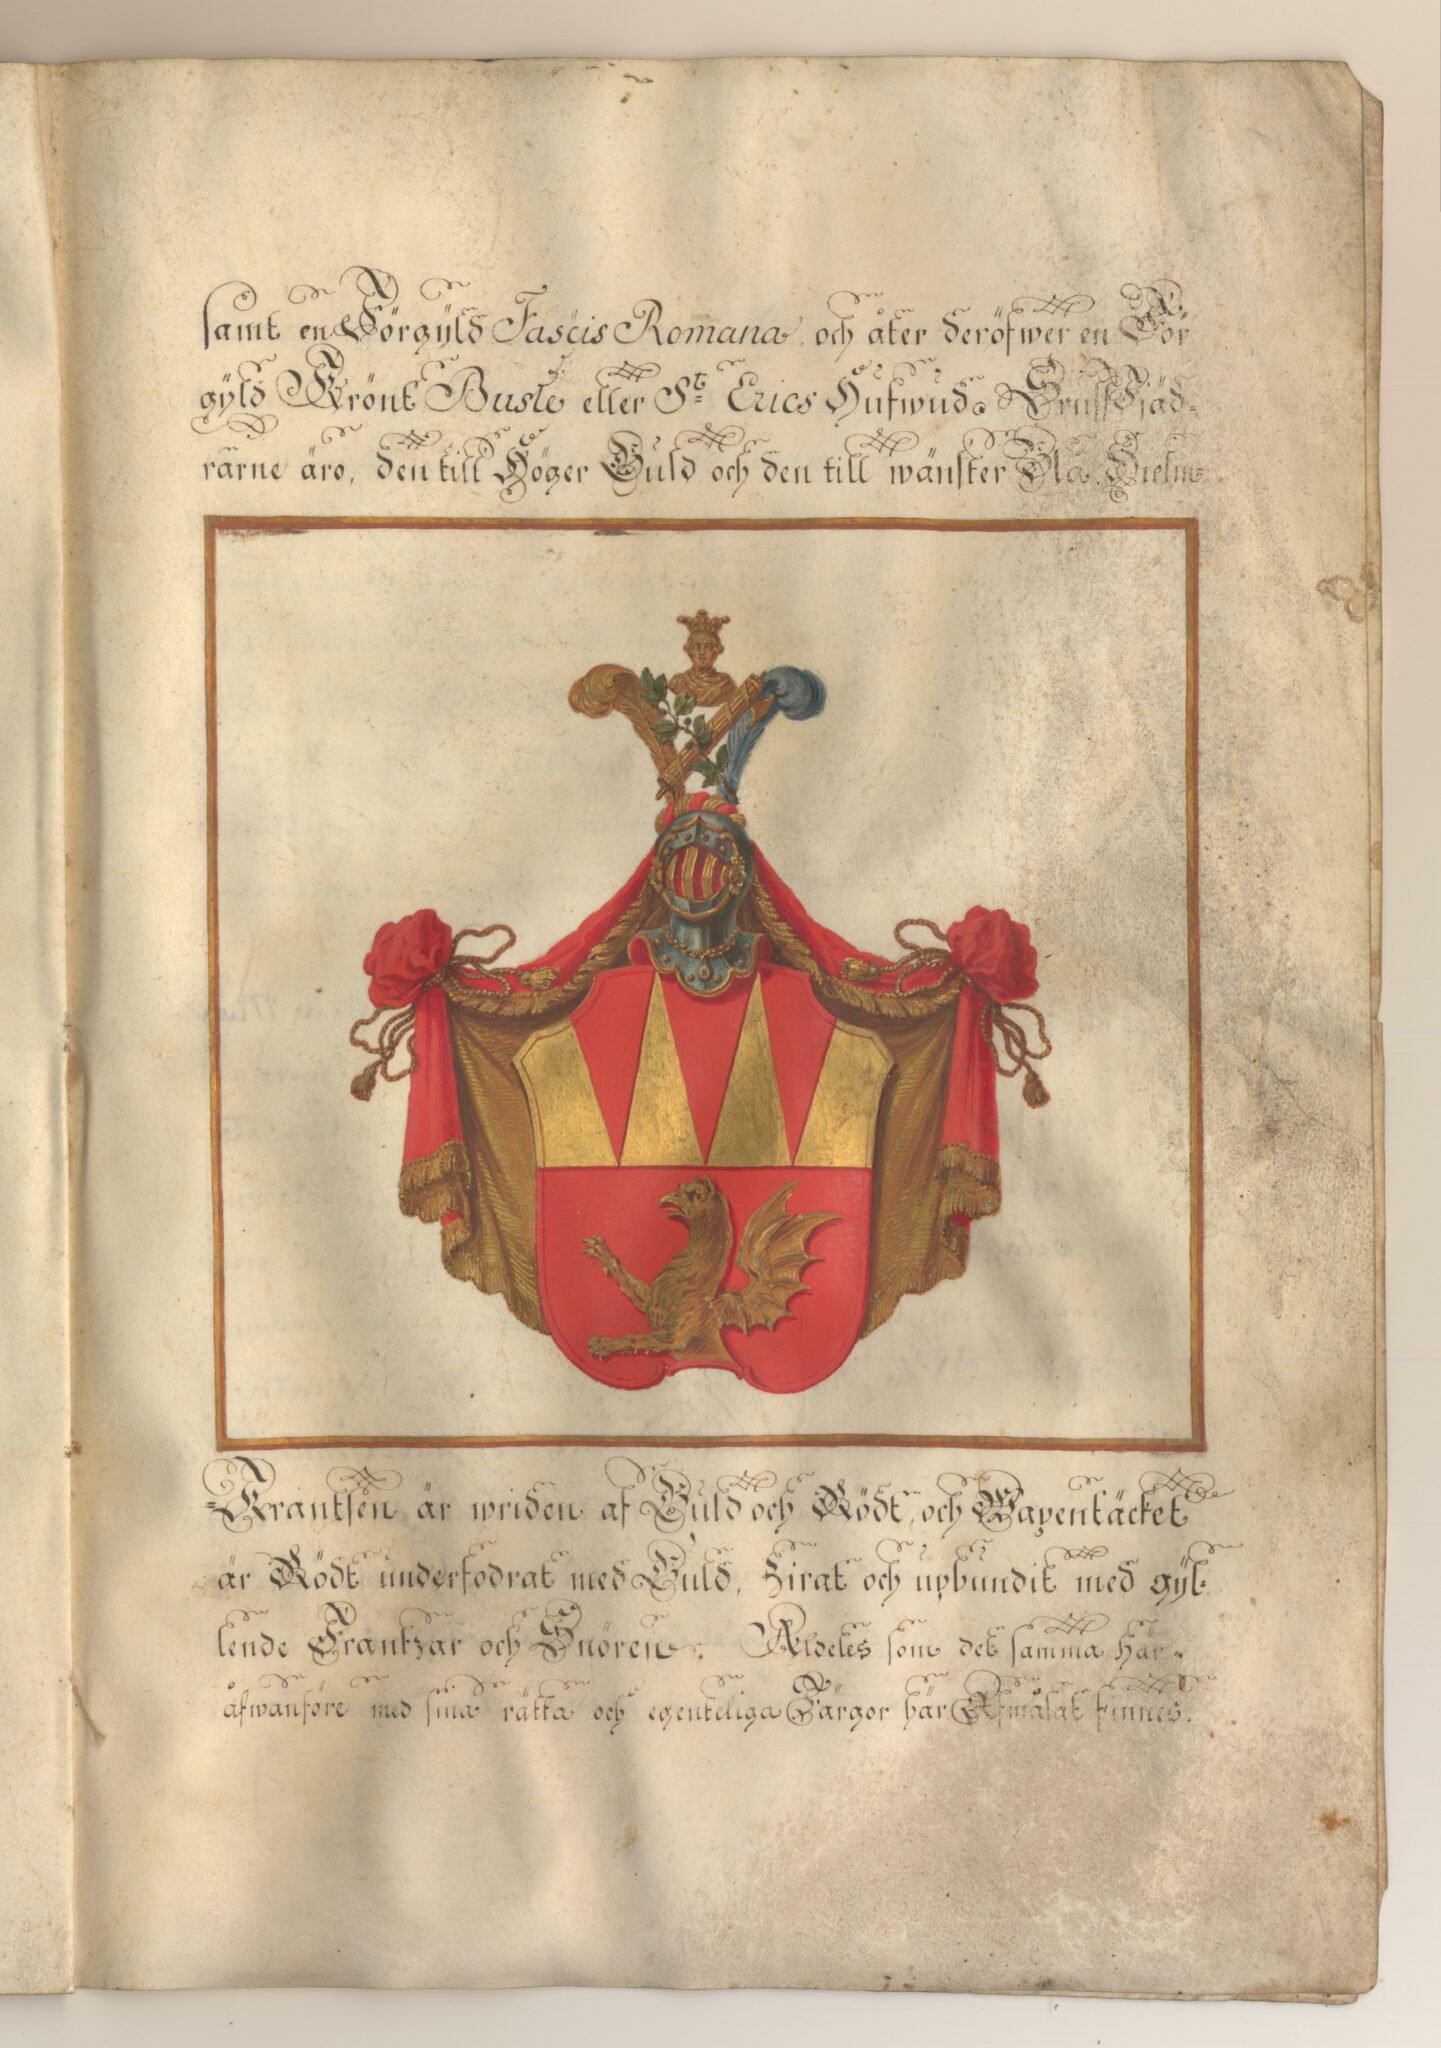 samt en Förgÿld Fascis Romana, och åter deröfwer en För
gÿld Krönt Buste eller St Erics Hufwud. Strutsfjäd-
rarne äro, den till Höger Guld och den till wänster Blå. Hielm-
Krantsen är wriden af Guld och Rödt, och Wapentäcket
är Rödt underfodrat med Guld, Zirat och upbundit med gÿl-
lende Frantzar och Snören. Aldeles som det samma här
åfwanföre med sina rätta och egenteliga Färgor här Afmålat finnes.